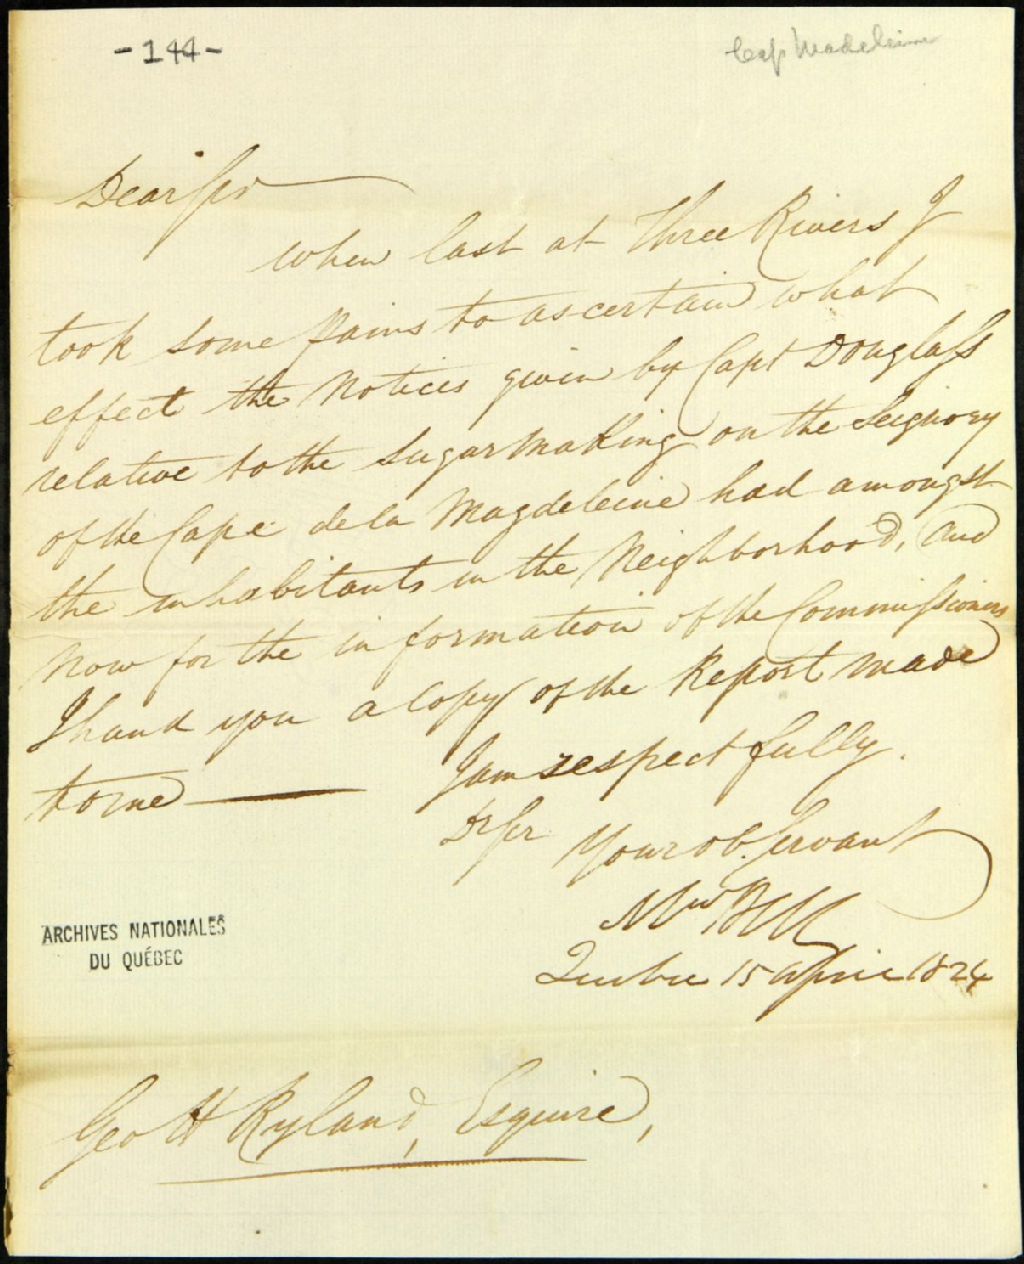 -144-
Cap Madeleine
Dear Sir
When last at Three Rivers I
took some pains to ascertain what
effect the Notices given by Capt Douglass
relative to the Sugar Making on the Seignory
of the Cape de la Magdeleine had amongst
the inhabitants in the Neighborhood, and
Now for the information of the Commissioners
I hand you a Copy of the Report made
to me
I am respectfully.
Dr Sir
Your ob. Servant
Mw Bell
Quebec 15 April 1824
ARCHIVES NATIONALES
DU QUÉBEC
Geo H Ryland, Esquire,